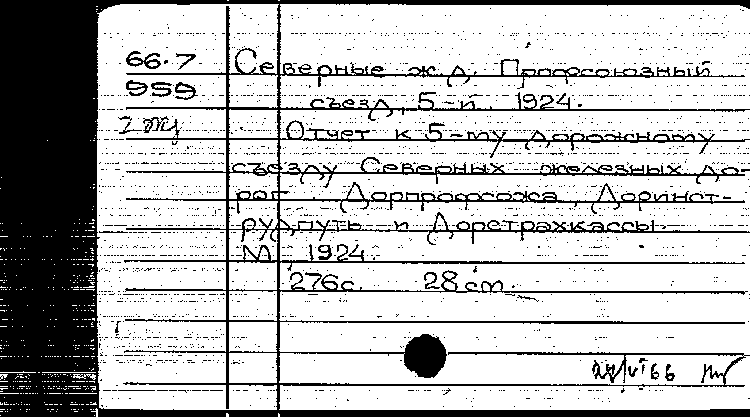 66.7
959
Северные ж.д. Профсоюзный
съезд, 5-й. 1924.
Отчет к 5-му дорожному
съезду Северных железных до-
рог. Дорпрофсожа, Доринст-
руд,путь и Дорстрахкассы.
М., 1924.
276с. 28 см.
66